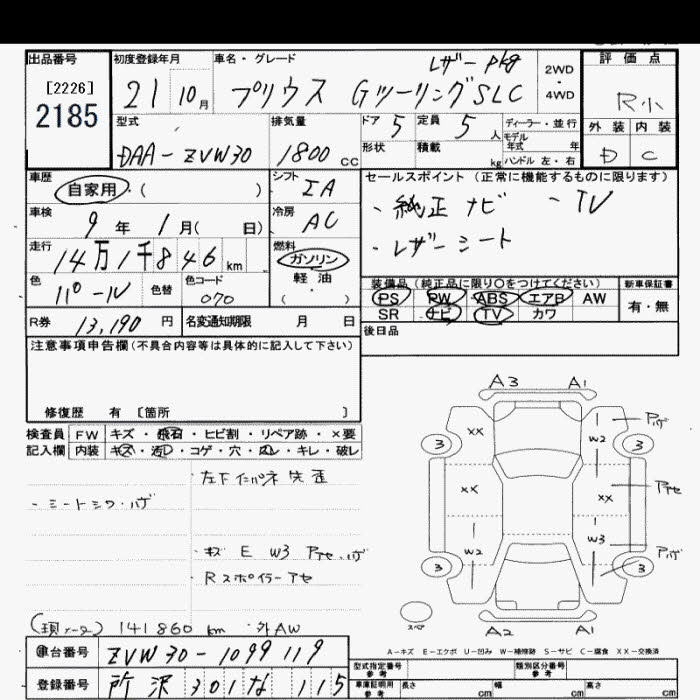 出品番号
[2226]
2185
初度登録年月
21 10月
車名・グレード
レザーpkg
プリウス GツーリングSLC
2WD・4WD
評価点
R小
外装 内装
D C
型式
DAA-ZVW30
排気量
1800 cc
ドア 5
定員 5人
形状
積載 kg
ディーラー・並行
モデル年式 年
ハンドル 左・右
車歴
自家用・( )
シフト
IA
車検
9年 1月( 日)
冷房
AC
走行
14万1千846 km
燃料
ガソリン
軽油
( )
色
パール
色替
色コード
070
R券 13,190円
名変通知期限 月 日
セールスポイント(正常に機能するものに限ります)
・純正ナビ ・TV
・レザーシート
装備品(純正品に限り○をつけてください)
PS PW ABS エアB AW
SR ナビ TV カワ
新車保証書
有・無
後日品
注意事項申告欄(不具合内容等は具体的に記入して下さい)
修復歴 有 [箇所 ]
検査員記入欄
FW キズ・飛石・ヒビ割・リペア跡・×要
内装 キズ・汚レ・コゲ・穴・凹レ・キレ・破レ
・左下インパネ先歪
・シートシワ・ハゲ
・キズ E W3 アセ・ハゲ
Rスポイラーアセ
(現メータ) 141860 km ・外AW
A3 A1
XX W2 ハゲ
3 3
XX XX アセ
W2 W3 ハゲ
3 3
スペア
A2 A1
A-キズ E-エクボ U-凹み W-補修跡 S-サビ C-腐食 XX-交換済
車台番号 ZVW30-1099119
登録番号 所沢301な115
型式指定番号 参考
類別区分番号 参考
車庫証明用 参考
長さ cm 幅 cm 高さ cm